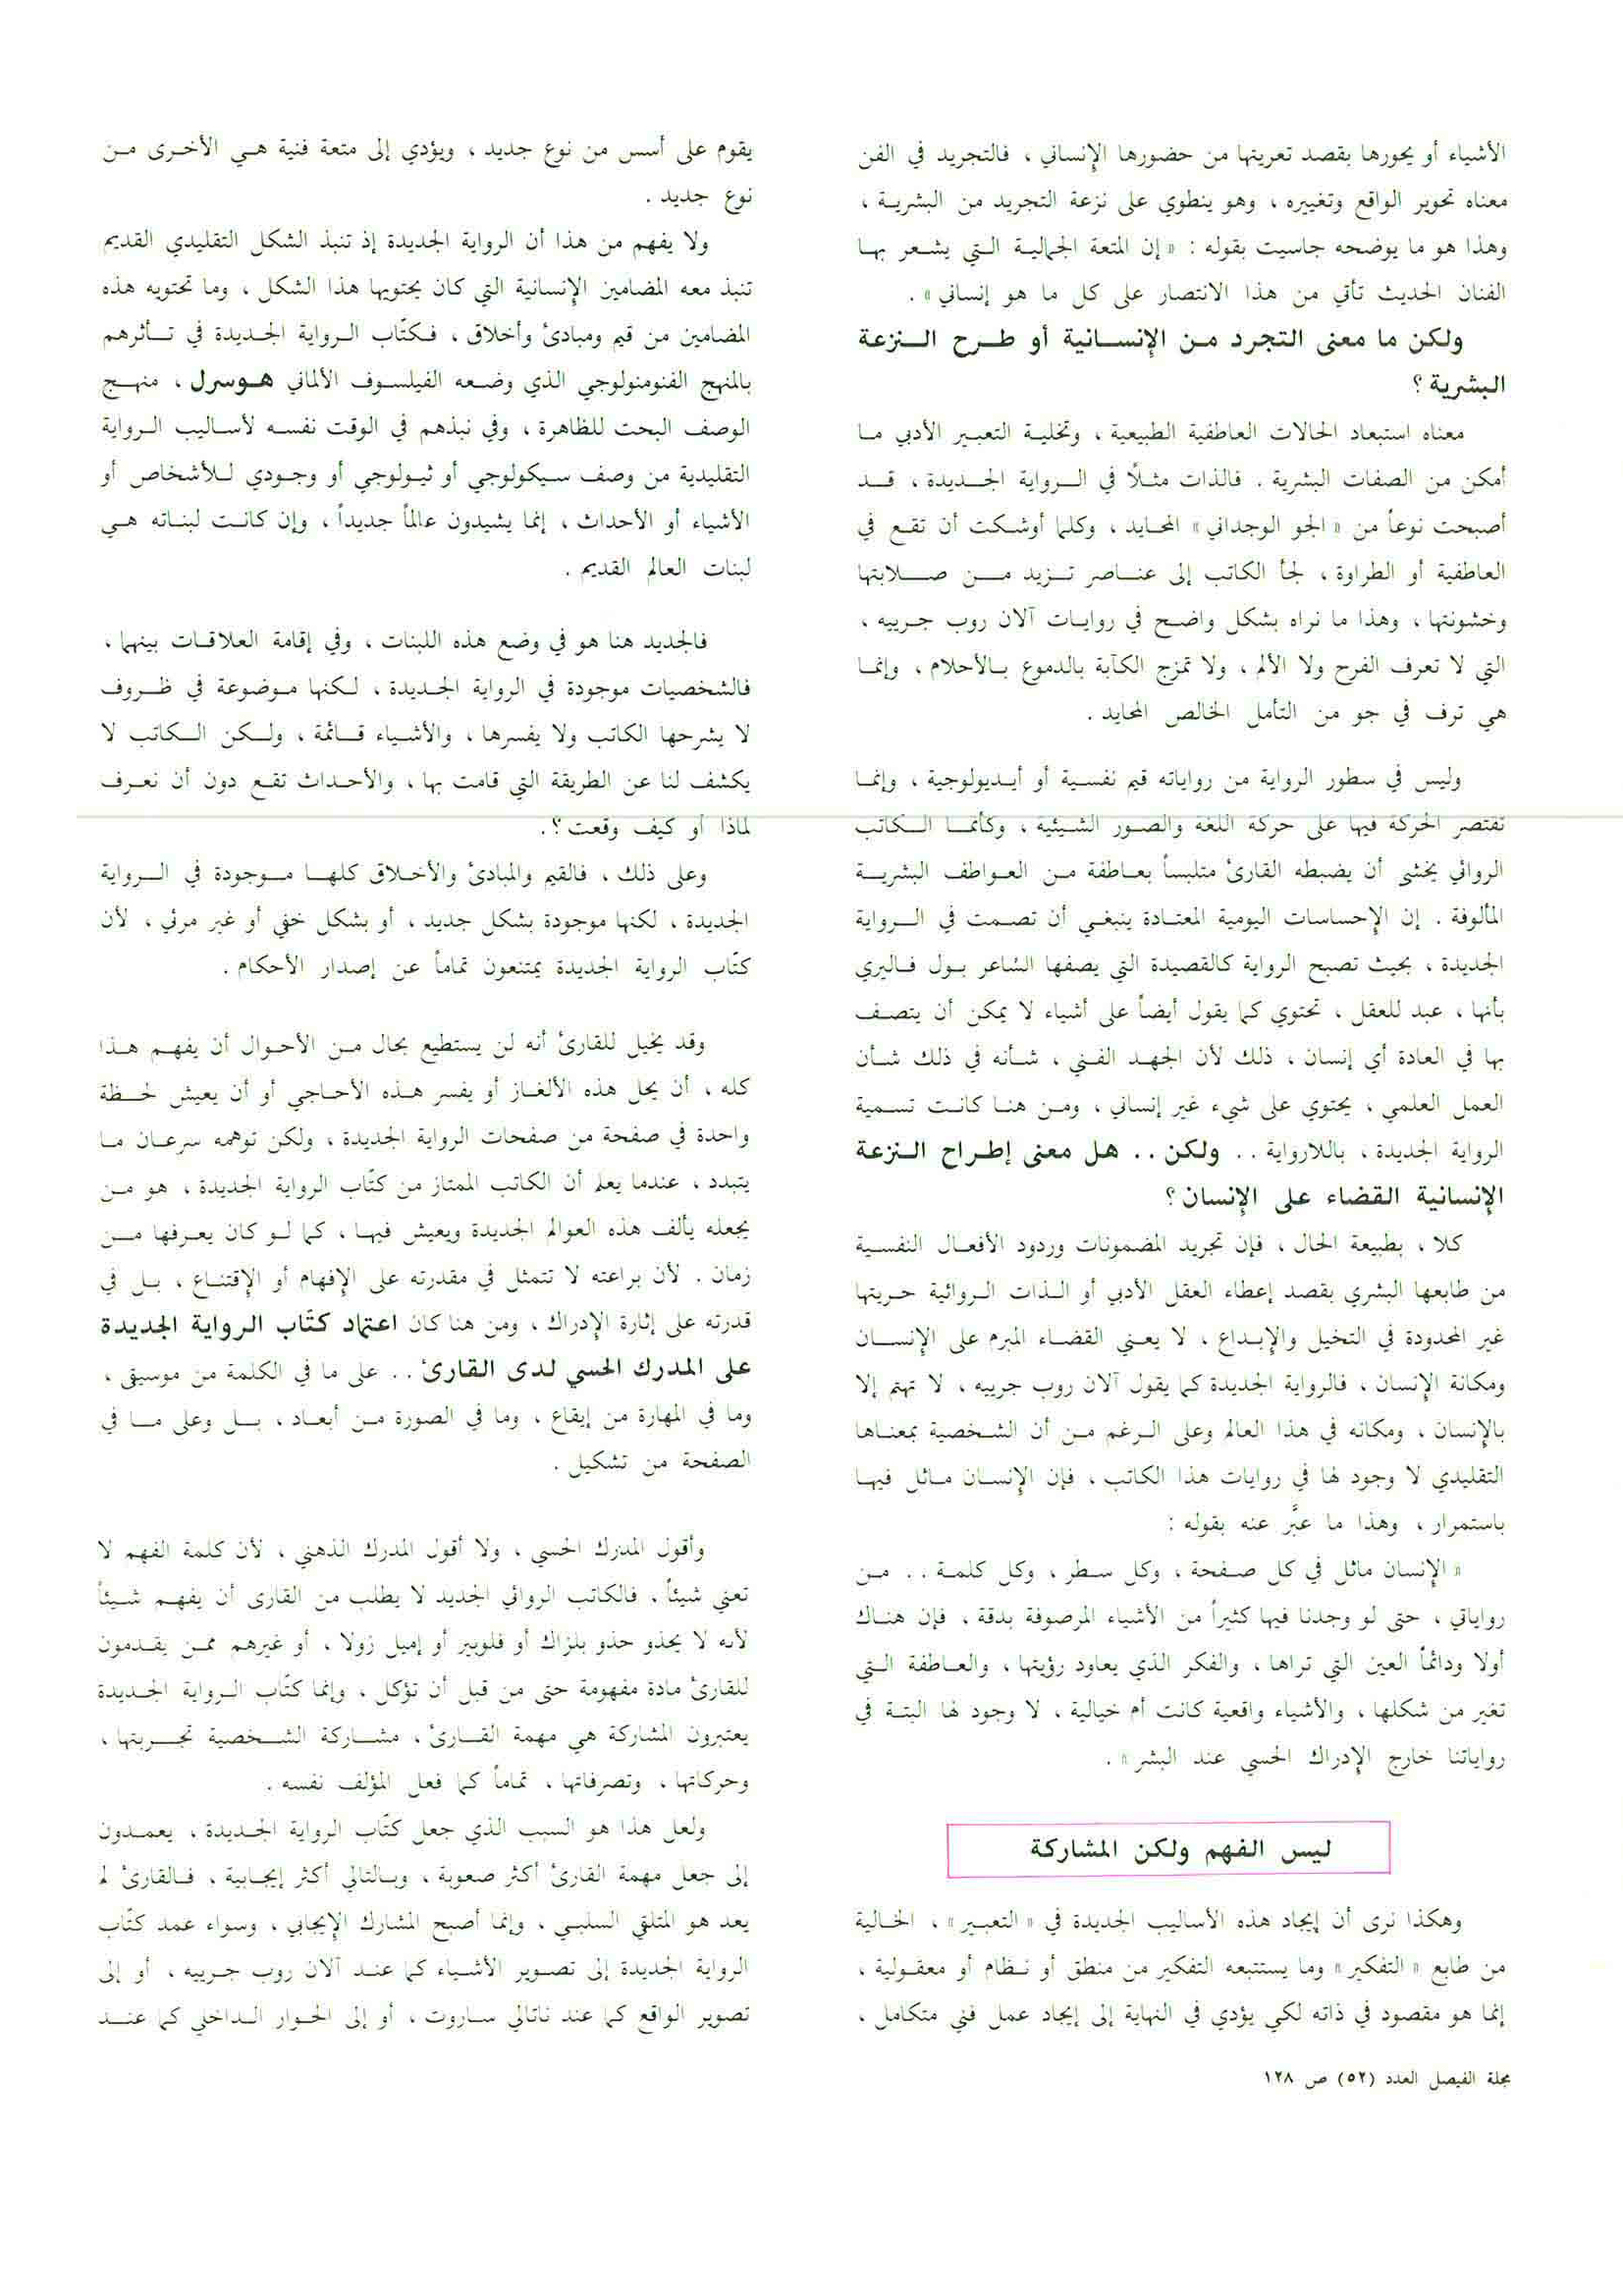 الأشياء أو يحورها بقصد تعريتها من حضورها الإنساني ، فالتجريد في الفن
معناه تحوير الواقع وتغييره ، وهو ينطوي على نزعة التجريد من البشرية ،
وهذا هو ما يوضحه جاسيت بقوله : « إن المتعة الجمالية التي يشعر بها
الفنان الحديث تأتي من هذا الانتصار على كل ما هو إنساني » .
ولكن ما معنى التجرد من الإنسانية أو طرح النزعة
البشرية ؟
معناه استبعاد الحالات العاطفية الطبيعية ، وتخلية التعبير الأدبي ما
أمكن من الصفات البشرية . فالذات مثلاً في الرواية الجديدة ، قد
أصبحت نوعاً من « الجو الوجداني » المحايد ، وكلما أوشكت أن تقع في
العاطفية أو الطراوة ، لجأ الكاتب إلى عناصر تزيد من صلابتها
وخشونتها ، وهذا ما نراه بشكل واضح في روايات آلان روب جرييه ،
التي لا تعرف الفرح ولا الألم ، ولا تمزج الكآبة بالدموع بالأحلام ، وإنما
هي ترف في جو من التأمل الخالص المحايد .
وليس في سطور الرواية من رواياته قيم نفسية أو أيديولوجية ، وإنما
تقتصر الحركة فيها على حركة اللغة والصور الشيئية ، وكأنما الكاتب
الروائي يخشى أن يضبطه القارئ متلبساً بعاطفة من العواطف البشرية
المألوفة . إن الإحساسات اليومية المعتادة ينبغي أن تصمت في الرواية
الجديدة ، بحيث تصبح الرواية كالقصيدة التي يصفها الشاعر بول فاليري
بأنها ، عبد للعقل ، تحتوي كما يقول أيضاً على أشياء لا يمكن أن يتصف
بها في العادة أي إنسان ، ذلك لأن الجهد الفني ، شأنه في ذلك شأن
العمل العلمي ، يحتوي على شيء غير إنساني ، ومن هنا كانت تسمية
الرواية الجديدة ، باللارواية . . ولكن . . هل معنى إطراح النزعة
الإنسانية القضاء على الإنسان ؟
كلا ، بطبيعة الحال ، فإن تجريد المضمونات وردود الأفعال النفسية
من طابعها البشري بقصد إعطاء العقل الأدبي أو الذات الروائية حريتها
غير المحدودة في التخيل والإبداع ، لا يعني القضاء المبرم على الإنسان
ومكانة الإنسان ، فالرواية الجديدة كما يقول آلان روب جرييه ، لا تهتم إلا
بالإنسان ، ومكانه في هذا العالم وعلى الرغم من أن الشخصية بمعناها
التقليدي لا وجود لها في روايات هذا الكاتب ، فإن الإنسان ماثل فيها
باستمرار ، وهذا ما عبَّر عنه بقوله :
« الإنسان ماثل في كل صفحة ، وكل سطر ، وكل كلمة . . من
رواياتي ، حتى لو وجدنا فيها كثيراً من الأشياء المرصوفة بدقة ، فإن هناك
أولا ودائماً العين التي تراها ، والفكر الذي يعاود رؤيتها ، والعاطفة التي
تغير من شكلها ، والأشياء واقعية كانت أم خيالية ، لا وجود لها البتة في
رواياتنا خارج الإدراك الحسي عند البشر » .
ليس الفهم ولكن المشاركة
وهكذا نرى أن إيجاد هذه الأساليب الجديدة في « التعبير » ، الخالية
من طابع « التفكير » وما يستتبعه التفكير من منطق أو نظام أو معقولية ،
إنما هو مقصود في ذاته لكي يؤدي في النهاية إلى إيجاد عمل فني متكامل ،
يقوم على أسس من نوع جديد ، ويؤدي إلى متعة فنية هي الأخرى من
نوع جديد .
ولا يفهم من هذا أن الرواية الجديدة إذ تنبذ الشكل التقليدي القديم
تنبذ معه المضامين الإنسانية التي كان يحتويها هذا الشكل ، وما تحتويه هذه
المضامين من قيم ومبادئ وأخلاق ، فكتّاب الرواية الجديدة في تأثرهم
بالمنهج الفنومنولوجي الذي وضعه الفيلسوف الألماني هوسرل ، منهج
الوصف البحت للظاهرة ، وفي نبذهم في الوقت نفسه لأساليب الرواية
التقليدية من وصف سيكولوجي أو ثيولوجي أو وجودي للأشخاص أو
الأشياء أو الأحداث ، إنما يشيدون عالماً جديداً ، وإن كانت لبناته هي
لبنات العالم القديم .
فالجديد هنا هو في وضع هذه اللبنات ، وفي إقامة العلاقات بينهما ،
فالشخصيات موجودة في الرواية الجديدة ، لكنها موضوعة في ظروف
لا يشرحها الكاتب ولا يفسرها ، والأشياء قائمة ، ولكن الكاتب لا
يكشف لنا عن الطريقة التي قامت بها ، والأحداث تقع دون أن نعرف
لماذا أو كيف وقعت ؟ .
وعلى ذلك ، فالقيم والمبادئ والأخلاق كلها موجودة في الرواية
الجديدة ، لكنها موجودة بشكل جديد ، أو بشكل خفي أو غير مرئي ، لأن
كتّاب الرواية الجديدة يمتنعون تماماً عن إصدار الأحكام .
وقد يخيل للقارئ أنه لن يستطيع بحال من الأحوال أن يفهم هذا
كله ، أن يحل هذه الألغاز أو يفسر هذه الأحاجي أو أن يعيش لحظة
واحدة في صفحة من صفحات الرواية الجديدة ، ولكن توهمه سرعان ما
يتبدد ، عندما يعلم أن الكاتب الممتاز من كتّاب الرواية الجديدة ، هو من
يجعله يألف هذه العوالم الجديدة ويعيش فيها ، كما لو كان يعرفها من
زمان . لأن براعته لا تتمثل في مقدرته على الإفهام أو الإقتناع ، بل في
قدرته على إثارة الإدراك ، ومن هنا كان اعتماد كتّاب الرواية الجديدة
على المدرك الحسي لدى القارئ . . على ما في الكلمة من موسيقى ،
وما في المهارة من إيقاع ، وما في الصورة من أبعاد ، بل وعلى ما في
الصفحة من تشكيل .
وأقول المدرك الحسي ، ولا أقول المدرك الذهني ، لأن كلمة الفهم لا
تعني شيئاً ، فالكاتب الروائي الجديد لا يطلب من القارئ أن يفهم شيئاً
لأنه لا يحذو حذو بلزاك أو فلوبير أو إميل زولا ، أو غيرهم ممن يقدمون
للقارئ مادة مفهومة حتى من قبل أن تؤكل ، وإنما كتّاب الرواية الجديدة
يعتبرون المشاركة هي مهمة القارئ ، مشاركة الشخصية تجربتها ،
وحركاتها ، وتصرفاتها ، تماماً كما فعل المؤلف نفسه .
ولعل هذا هو السبب الذي جعل كتّاب الرواية الجديدة ، يعمدون
إلى جعل مهمة القارئ أكثر صعوبة ، وبالتالي أكثر إيجابية ، فالقارئ لم
يعد هو المتلقي السلبي ، وإنما أصبح المشارك الإيجابي ، وسواء عمد كتّاب
الرواية الجديدة إلى تصوير الأشياء كما عند آلان روب جرييه ، أو إلى
تصوير الواقع كما عند ناتالي ساروت ، أو إلى الحوار الداخلي كما عند
مجلة الفيصل العدد (٥٢) ص ١٢٨